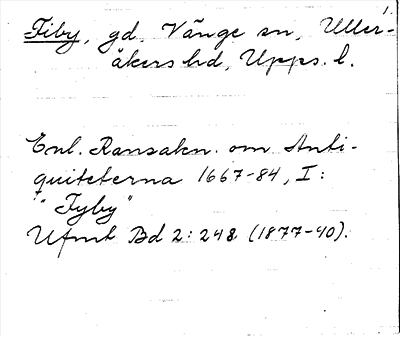 1.
Fiby, gd. Vänge sn, Uller-
åkers hd, Upps. l.
Enl. Ransakn. om Anti-
quiteterna 1667-84, I:
"Fyby"
Ufmt Bd 2:248 (1877-90).